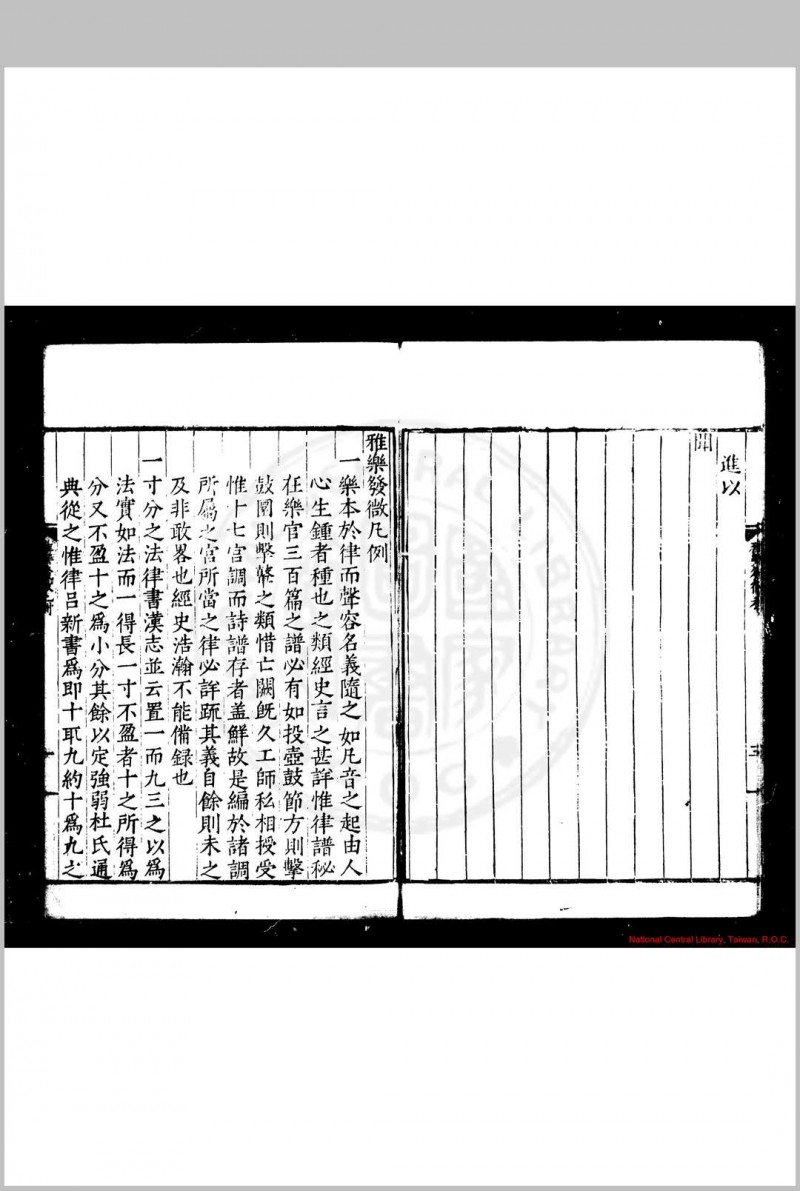 進以
聞
雅樂發微凡例
一樂本於律而聲容名義隨之如凡音之起由人
心生鍾者種也之類經史言之甚詳惟律譜秘
在樂官三百篇之譜必有如投壺鼓節方則擊
鼔圓則擊鼙之類惜亡闕旣久工師私相授受
惟十七宫調而詩譜存者盖鮮故是編於諸調
所屬之宫所當之律必詳疏其義自餘則未之
及非敢畧也經史浩瀚不能備録也
一寸分之法律書漢志並云置一而九三之以爲
法實如法而一得長一寸不盈者十之所得爲
分又不盈十之爲小分其餘以定強弱杜氏通
典從之惟律吕新書爲即十取九約十爲九之
National Central Library, Taiwan, R.O.C.